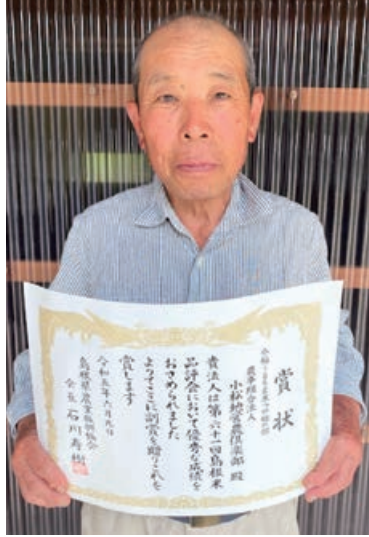 賞状
農事組合法人
小松地営農倶楽部 殿
貴法人は第六十一回島根米
品評会において優秀な成績を
おさめられました
よってここに副賞を贈りこれを
賞します
令和五年六月九日
島根県農業振興協会
会長 石川寿樹